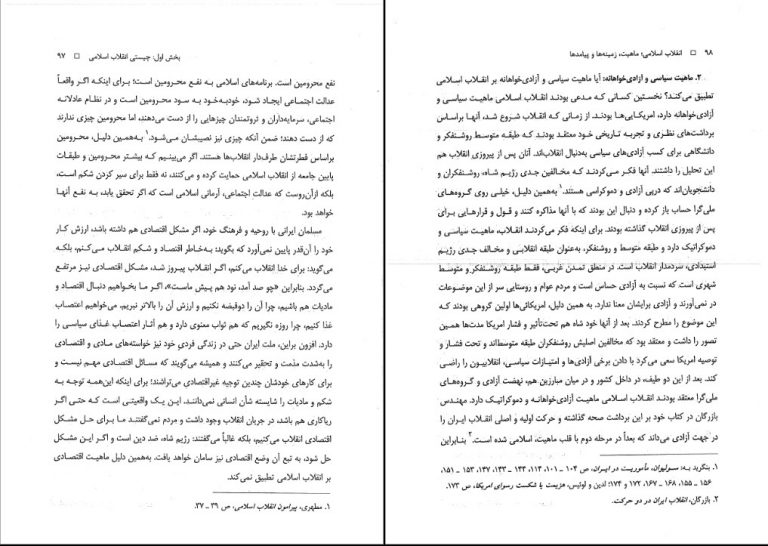 بخش اول: چیستی انقلاب اسلامی □ ۹۷
نفع محرومین است. برنامه‌های اسلامی به نفع محرومین است؛ برای اینکه اگر واقعاً
عدالت اجتماعی ایجاد شود، خودبه‌خود به سود محرومین است و در نظام عادلانه
اجتماعی، سرمایه‌داران و ثروتمندان چیزهایی را از دست می‌دهند، اما محرومین چیزی ندارند
که از دست دهند؛ ضمن آنکه چیزی نیز نصیبشان می‌شود.۱ به‌همین دلیل، محرومین
براساس فطرتشان طرف‌دار انقلاب‌ها هستند. اگر می‌بینیم که بیشتر محرومین و طبقات
پایین جامعه از انقلاب اسلامی حمایت کرده و می‌کنند، نه فقط برای سیر کردن شکم است،
بلکه ازآن‌روست که عدالت اجتماعی، آرمانی اسلامی است که اگر تحقق یابد، به نفع آنها
خواهد بود.
مسلمان ایرانی با روحیه و فرهنگ خود، اگر مشکل اقتصادی هم داشته باشد، ارزش کار
خود را آن‌قدر پایین نمی‌آورد که بگوید: به‌خاطر اقتصاد و شکم انقلاب می‌کنم، بلکه
می‌گوید: برای خدا انقلاب می‌کنم، اگر انقلاب پیروز شد، مشکل اقتصادی نیز مرتفع
می‌گردد. بنابراین «چو صد آمد، نود هم پیش ماست»، اگر ما بخواهیم دنبال اقتصاد و
مادیات هم باشیم، چرا آن را دوقبضه نکنیم و ارزش آن را بالاتر نبریم، می‌خواهیم اعتصاب
غذا کنیم، چرا روزه نگیریم که هم ثواب معنوی دارد و هم آثار اعتصاب غذای سیاسی را
دارد. افزون براین، ملت ایران حتی در زندگی فردی خود نیز خواسته‌های مادی و اقتصادی
را به‌شدت مذمت و تحقیر می‌کنند و همیشه می‌گویند که مسائل اقتصادی مهم نیست و
برای کارهای خودشان چندین توجیه غیراقتصادی می‌تراشند؛ برای اینکه این‌همه توجه به
شکم و مادیات را شایسته شأن انسانی نمی‌دانند. این یک واقعیتی است که حتی اگر
ریاکاری هم باشد، در جریان انقلاب وجود داشت و مردم نمی‌گفتند ما برای حل مشکل
اقتصادی انقلاب می‌کنیم، بلکه غالباً می‌گفتند: رژیم شاه، ضد دین است و اگر این مشکل
حل شود، به تبع آن وضع اقتصادی نیز سامان خواهد یافت. به‌همین دلیل ماهیت اقتصادی
بر انقلاب اسلامی تطبیق نمی‌کند.
۱. مطهری، پیرامون انقلاب اسلامی، ص ۳۹ ـ ۳۷.
۹۸ □ انقلاب اسلامی؛ ماهیت، زمینه‌ها و پیامدها
۲. ماهیت سیاسی و آزادی‌خواهانه: آیا ماهیت سیاسی و آزادی‌خواهانه بر انقلاب اسلامی
تطبیق می‌کند؟ نخستین کسانی که مدعی بودند انقلاب اسلامی ماهیت سیاسی و
آزادی‌خواهانه دارد، امریکایی‌ها بودند. از زمانی که انقلاب شروع شد، آنها براساس
برداشت‌های نظری و تجربه تاریخی خود معتقد بودند که طبقه متوسط روشنفکر و
دانشگاهی برای کسب آزادی‌های سیاسی به‌دنبال انقلاب‌اند. آنان پس از پیروزی انقلاب هم
این تحلیل را داشتند. آنها فکر می‌کردند که مخالفین جدی رژیم شاه، روشنفکران و
دانشجویان‌اند که درپی آزادی و دموکراسی هستند.۱ به‌همین دلیل، خیلی روی گروه‌های
ملی‌گرا حساب باز کرده و دنبال این بودند که با آنها مذاکره کنند و قول و قرارهایی برای
پس از پیروزی انقلاب گذاشته بودند. برای اینکه فکر می‌کردند انقلاب، ماهیت سیاسی و
دموکراتیک دارد و طبقه متوسط و روشنفکر، به‌عنوان طبقه انقلابی و مخالف جدی رژیم
استبدادی، سردمدار انقلاب است. در منطق تمدن غربی، فقط طبقه روشنفکر و متوسط
شهری است که نسبت به آزادی حساس است و مردم عوام و روستایی سر از این موضوعات
در نمی‌آورند و آزادی برایشان معنا ندارد. به همین دلیل، امریکائی‌ها اولین گروهی بودند که
این موضوع را مطرح کردند. بعد از آنها خود شاه هم تحت‌تأثیر و فشار امریکا مدت‌ها همین
تصور را داشت و معتقد بود که مخالفین اصلیش روشنفکران طبقه متوسط‌اند و تحت فشار و
توصیه امریکا سعی می‌کرد با دادن برخی آزادی‌ها و امتیازات سیاسی، انقلابیون را راضی
کند. بعد از این دو طیف، در داخل کشور و در میان مبارزین هم، نهضت آزادی و گروه‌های
ملی‌گرا معتقد بودند انقلاب اسلامی ماهیت آزادی‌خواهانه و دموکراتیک دارد. مهندس
بازرگان در کتاب خود بر این برداشت صحه گذاشته و حرکت اولیه و اصلی انقلاب ایران را
در جهت آزادی می‌داند که بعداً در مرحله دوم با قلب ماهیت، اسلامی شده است.۲ بنابراین
۱. بنگرید به: سولیوان، مأموریت در ایران، ص ۱۰۴ ـ ۱۰۱، ۱۱۳، ۱۴۴ ـ ۱۴۳، ۱۴۷، ۱۵۳ ـ ۱۵۱،
۱۵۶ ـ ۱۵۵، ۱۶۸ ـ ۱۶۷، ۱۷۲ و ۱۷۴؛ لدین و لوئیس، هزیمت یا شکست رسوای امریکا، ص ۱۷۳.
۲. بازرگان، انقلاب ایران در دو حرکت.